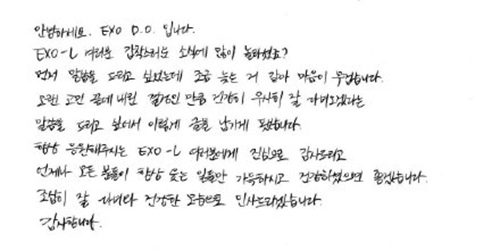 안녕하세요. EXO D.O. 입니다.
EXO-L 여러분 갑작스러운 소식에 많이 놀라셨죠?
먼저 말씀을 드리고 싶었는데 조금 늦은 거 같아 마음이 무겁습니다.
오랜 고민 끝에 내린 결정인 만큼 건강히 무사히 잘 다녀오겠다는
말씀을 드리고 싶어서 이렇게 글을 남기게 됐습니다.
항상 응원해주시는 EXO-L 여러분에게 진심으로 감사드리고
언제나 모든 분들이 항상 웃는 일들만 가득하시고 건강하셨으면 좋겠습니다.
조심히 잘 다녀와 건강한 모습으로 인사드리겠습니다.
감사합니다.